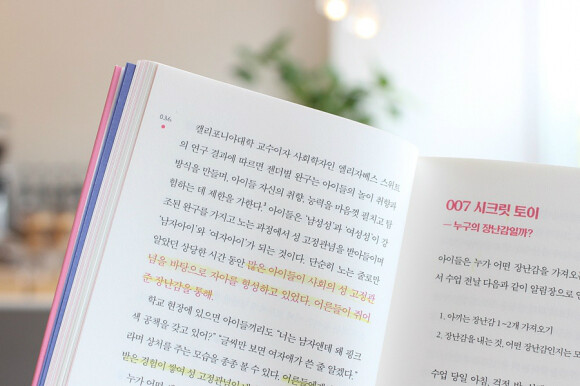 036
캘리포니아대학 교수이자 사회학자인 엘리자베스 스위트
의 연구 결과에 따르면 젠더벌 완구는 아이들의 놀이 취향과
방식을 만들며, 아이들 자신의 취향, 능력을 마음껏 펼치고 탐
험하는 데 제한을 가한다. 아이들은 '남성성'과 '여성성'이 강
조된 완구를 가지고 노는 과정에서 성 고정관념을 받아들이며
'남자아이'와 '여자아이'가 되는 것이다. 단순히 노는 줄로만
알았던 상당한 시간 동안 많은 아이들이 사회의 성 고정관
념을 바탕으로 자아를 형성하고 있었다. 어른들이 쥐어
준 장난감을 통해.
학교 현장에 있으면 아이들끼리도 "너는 남자앤데 왜 핑크
색 공책을 갖고 있어?" "글씨만 보면 여자애가 쓴 줄 알겠다."
라며 상처를 주는 모습을 종종 볼 수 있다. 어른들에게
받은 경험이 쌓여 성 고정관념이
누가 어떤
007 시크릿 토이
— 누구의 장난감일까?
아이들은 누가 어떤 장난감을 가져오는
서 수업 전날 다음과 같이 알림장으로 안
1. 아끼는 장난감 1~2개 가져오기
2. 장난감을 내는 것, 어떤 장난감인지는
수업 당일 아침, 걱정 반